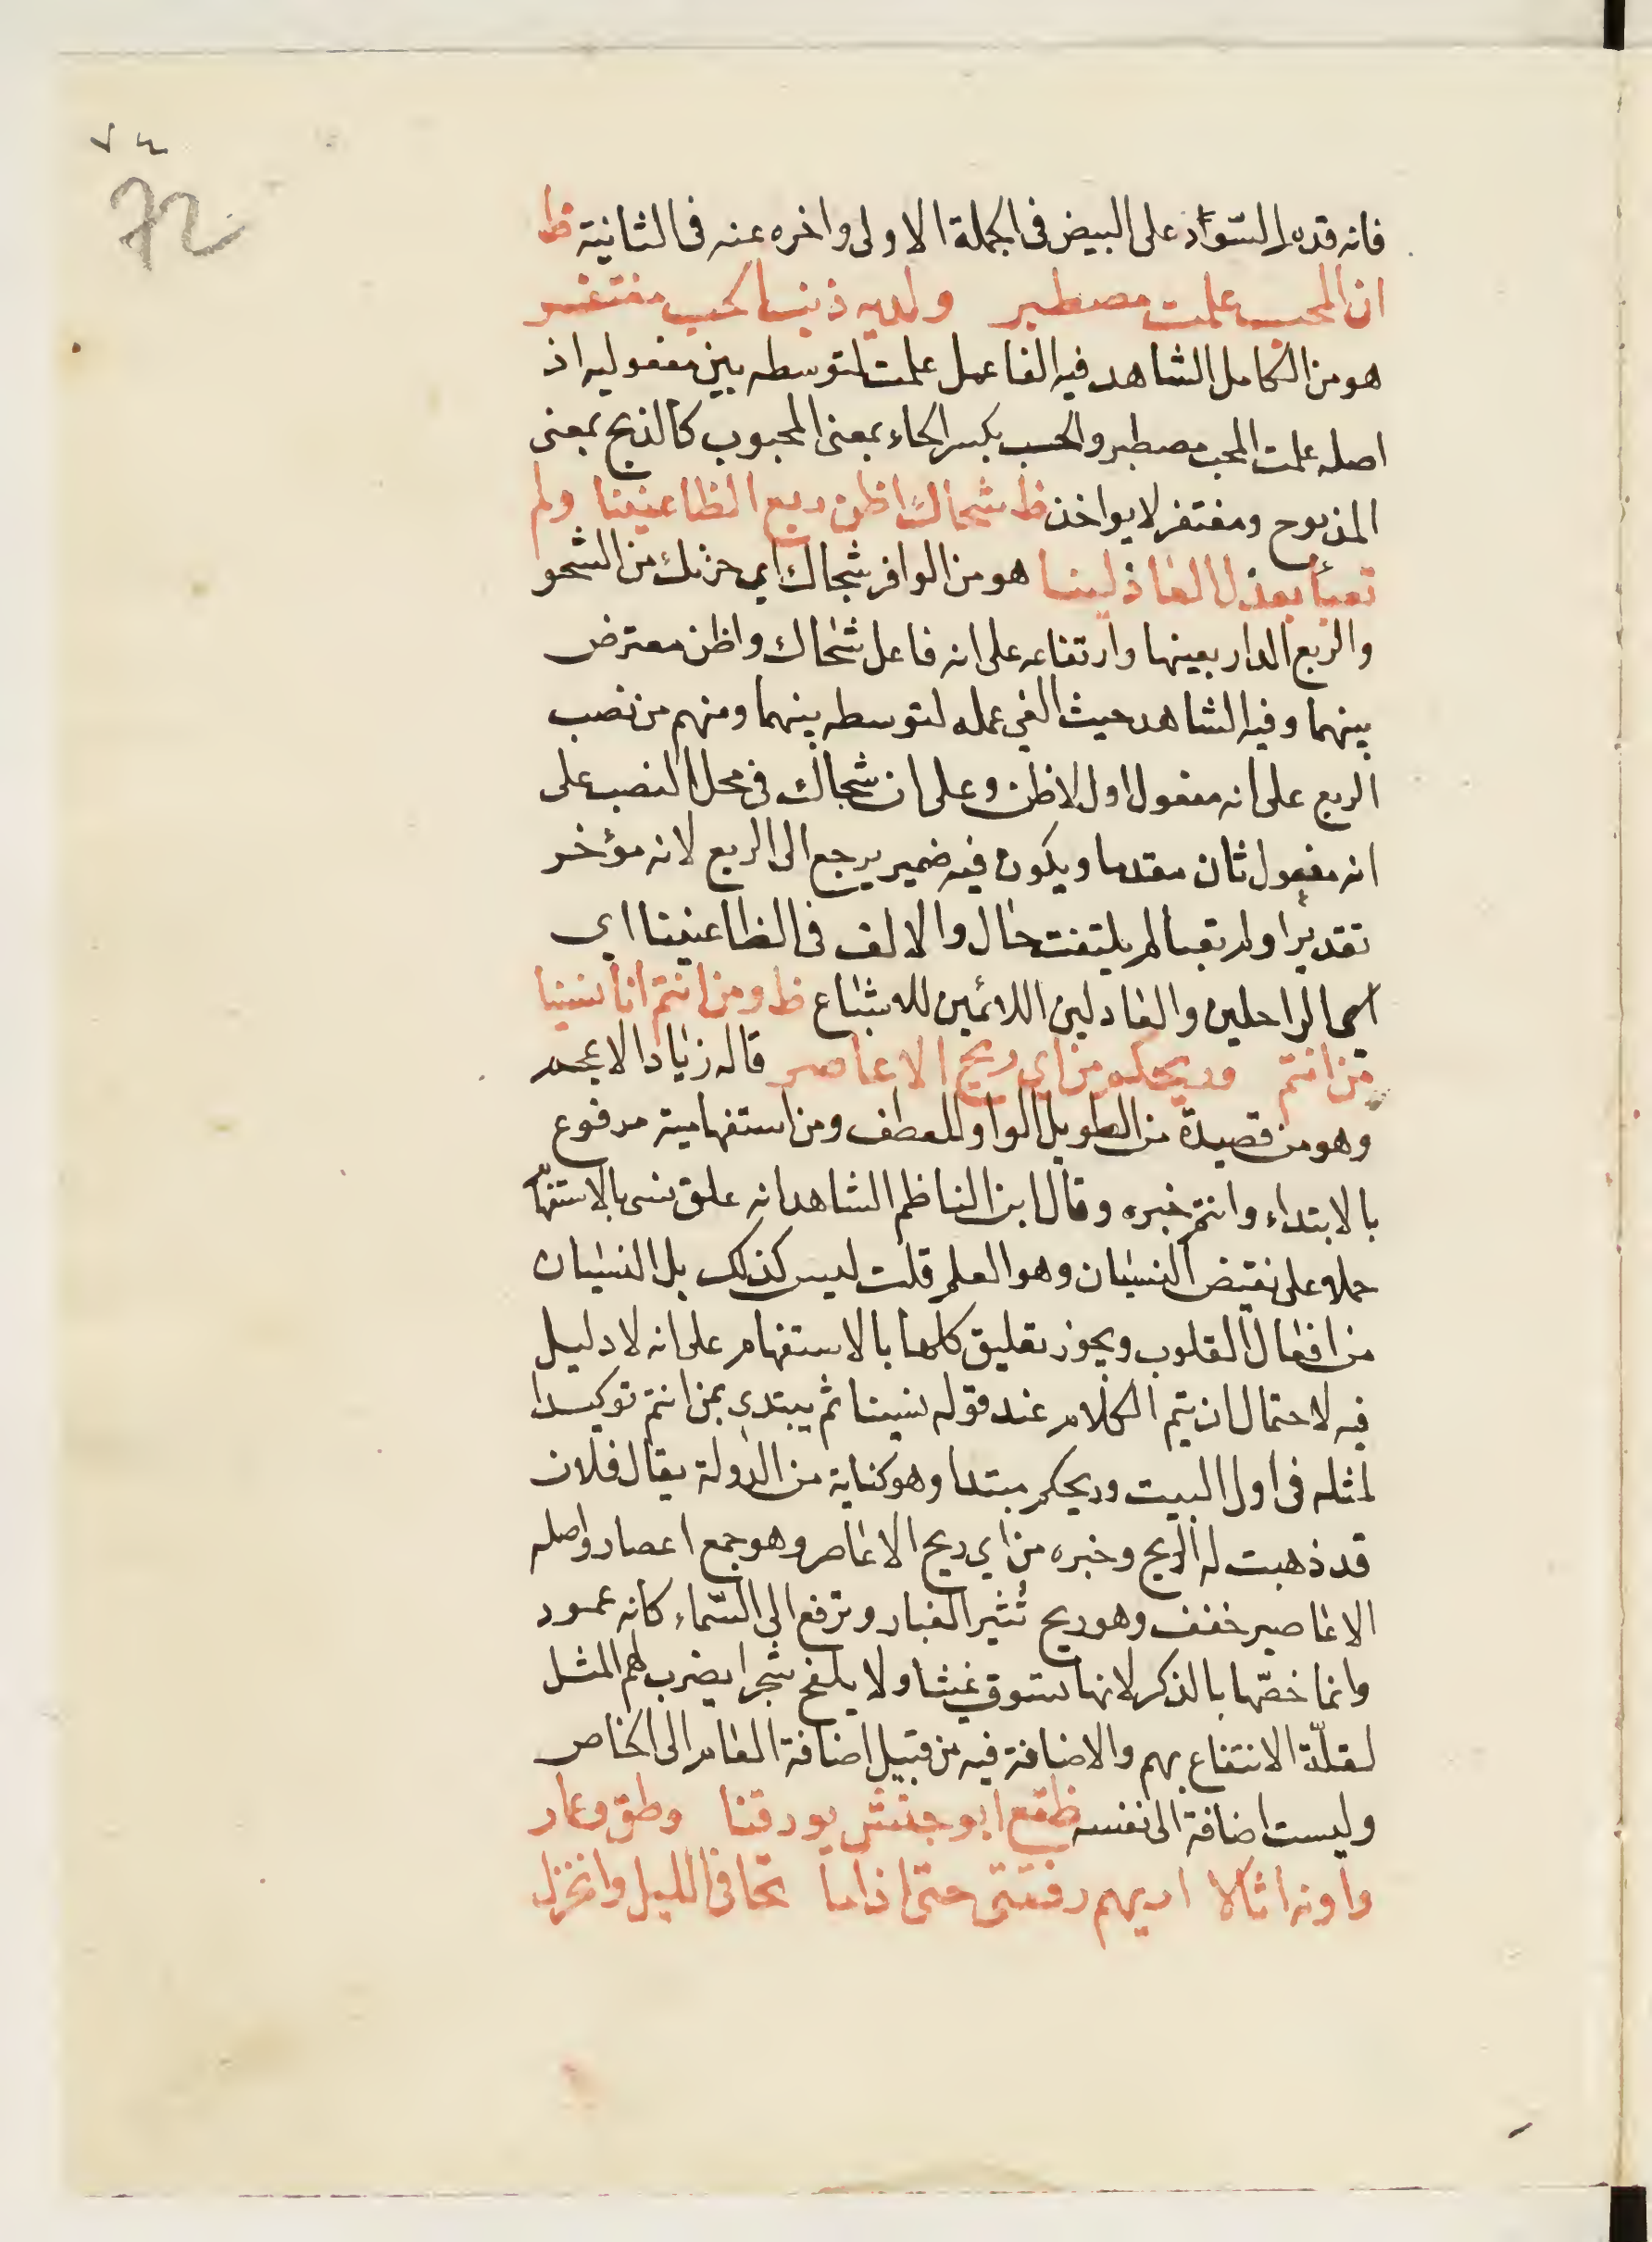 ٧٤
72
فانه قدم السّواد على البيض فى الجملة الاولى واخره عنه فى الثانية ظ
ان المحب علمت مصطبر ولديه ذنب الحب مغتفر
هو من الكامل الشاهد فيه الغا عمل علمت لتوسطه بين مفعوليه اذ
اصله علمت المحب مصطبر والحب بكسر الحاء بمعنى المحبوب كالذبح بمعنى
المذبوح ومغتفر لا يواخذ ظ شجاك اظن ربع الظاعنينا ولم
تعبأ بعذل العاذلينا هو من الوافر شجاك اي حزنك من الشجو
والربع الدار بعينها وارتفاعه على انه فاعل شجاك واظن معترض
بينهما وفيه الشاهد حيث الغي عمله لتوسطه بينهما ومنهم من نصب
الربع على انه مفعول اول لاظن وعلى ان شجاك فى محل النصب على
انه مفعول ثان مقدما ويكون فيه ضمير يرجع الى الربع لانه مؤخر
تقديرا ولم تعبا لم يلتفت حال والالف فى الظاعنينا اي
الراحلين والعاذلين اللائمين للاشباع ظ ومن انتم انا نسينا
من انتم وريحكم من اي ريح الاعاصر قاله زياد الاعجم
وهو من قصيدة من الطويل الواو للعطف ومن استفهامية مرفوع
بالابتداء وانتم خبره وقال ابن الناظم الشاهد انه علق نسى بالاستفها
حملا على نقيض النسيان وهو العلم قلت ليس كذلك بل النسيان
من افعال القلوب ويجوز تعليق كلها بالاستفهام على انه لا دليل
فيه لاحتمال ان يتم الكلام عند قوله نسينا ثم يبتدي بمن انتم توكيدا
لمثله فى اول البيت وريحكم مبتدا وهو كناية من الدولة يقال فلان
قد ذهبت له الريح وخبره من اي ريح الاعاصر وهو جمع اعصار واصله
الاعاصير خفف وهو ريح تُثير الغبار وترفع الى السّماء كانه عمود
وانما خصّها بالذكر لانها تسوق غيثا ولا يلقح شجرا يضرب لهم المثل
لقلّة الانتفاع بهم والاضافة فيه من قبيل اضافة العام الى الخاص
وليست اضافة الى نفسه ظقع ابو حنش يورقنا وطلق وعمار
واونه اثالا اريهم رفقتى حتى اذا ما تجافى الليل وانخزل